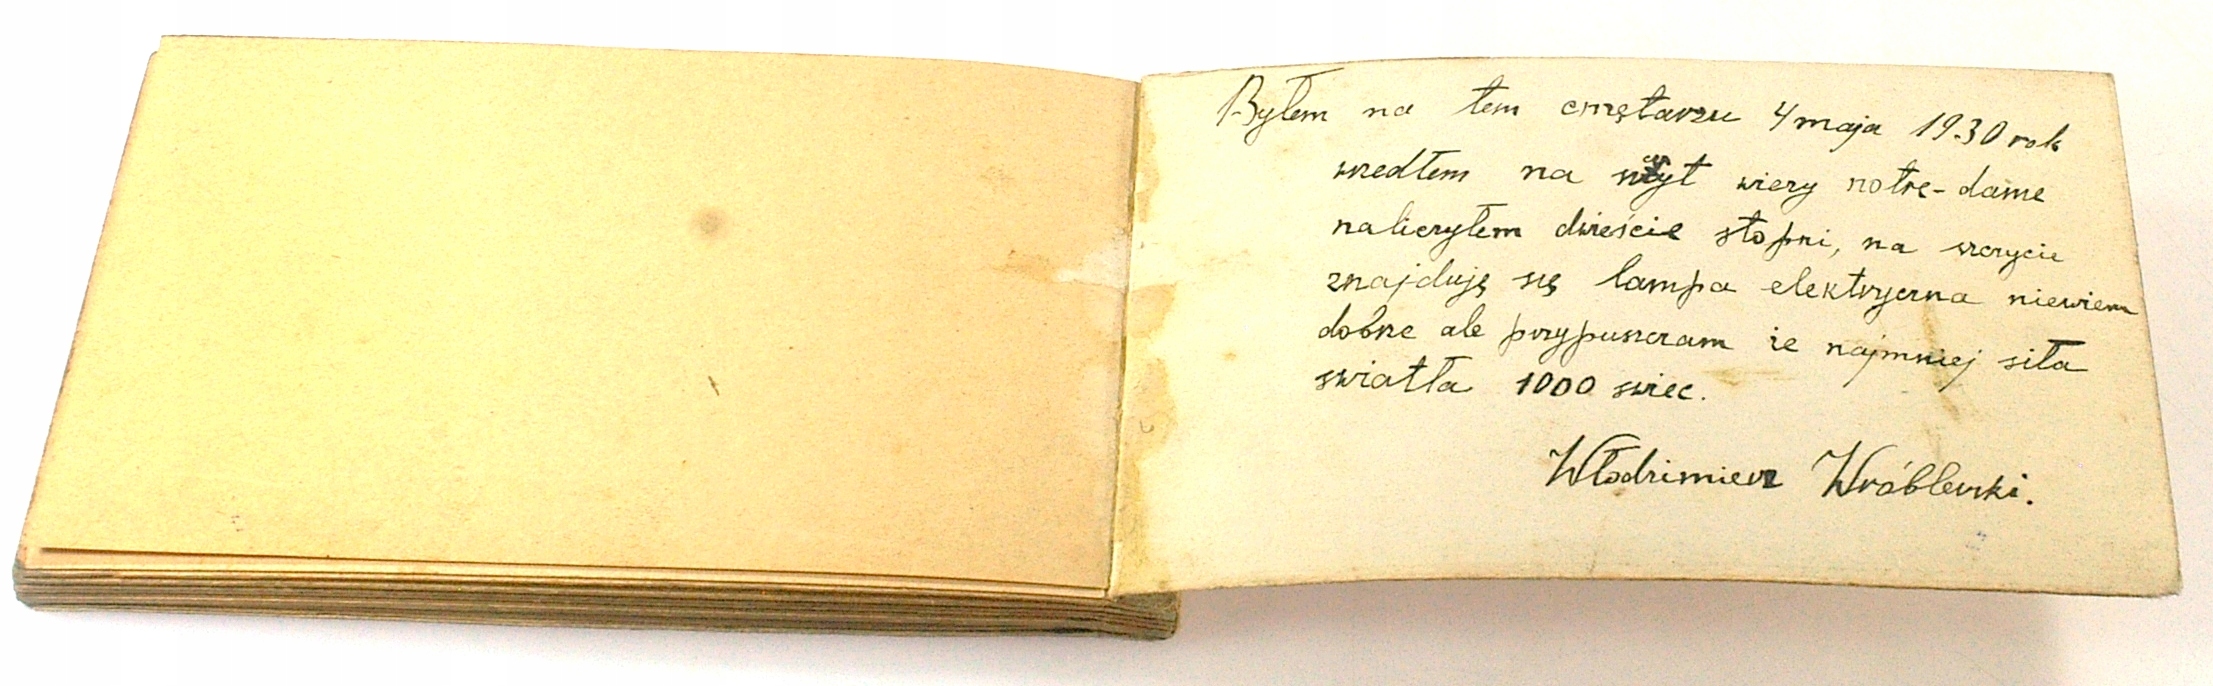 Byłem na tem cmętarzu 4 maja 1930 rok
wzedłem na szczyt wieży notrę-dame
naliczyłem dwieście stopni, na szczycie
znajduję się lampa elektryczna niewiem
dobrze ale przypuszczam że najmniej siła
swiatła 1000 swiec.
Włodzimierz Wróblewski.